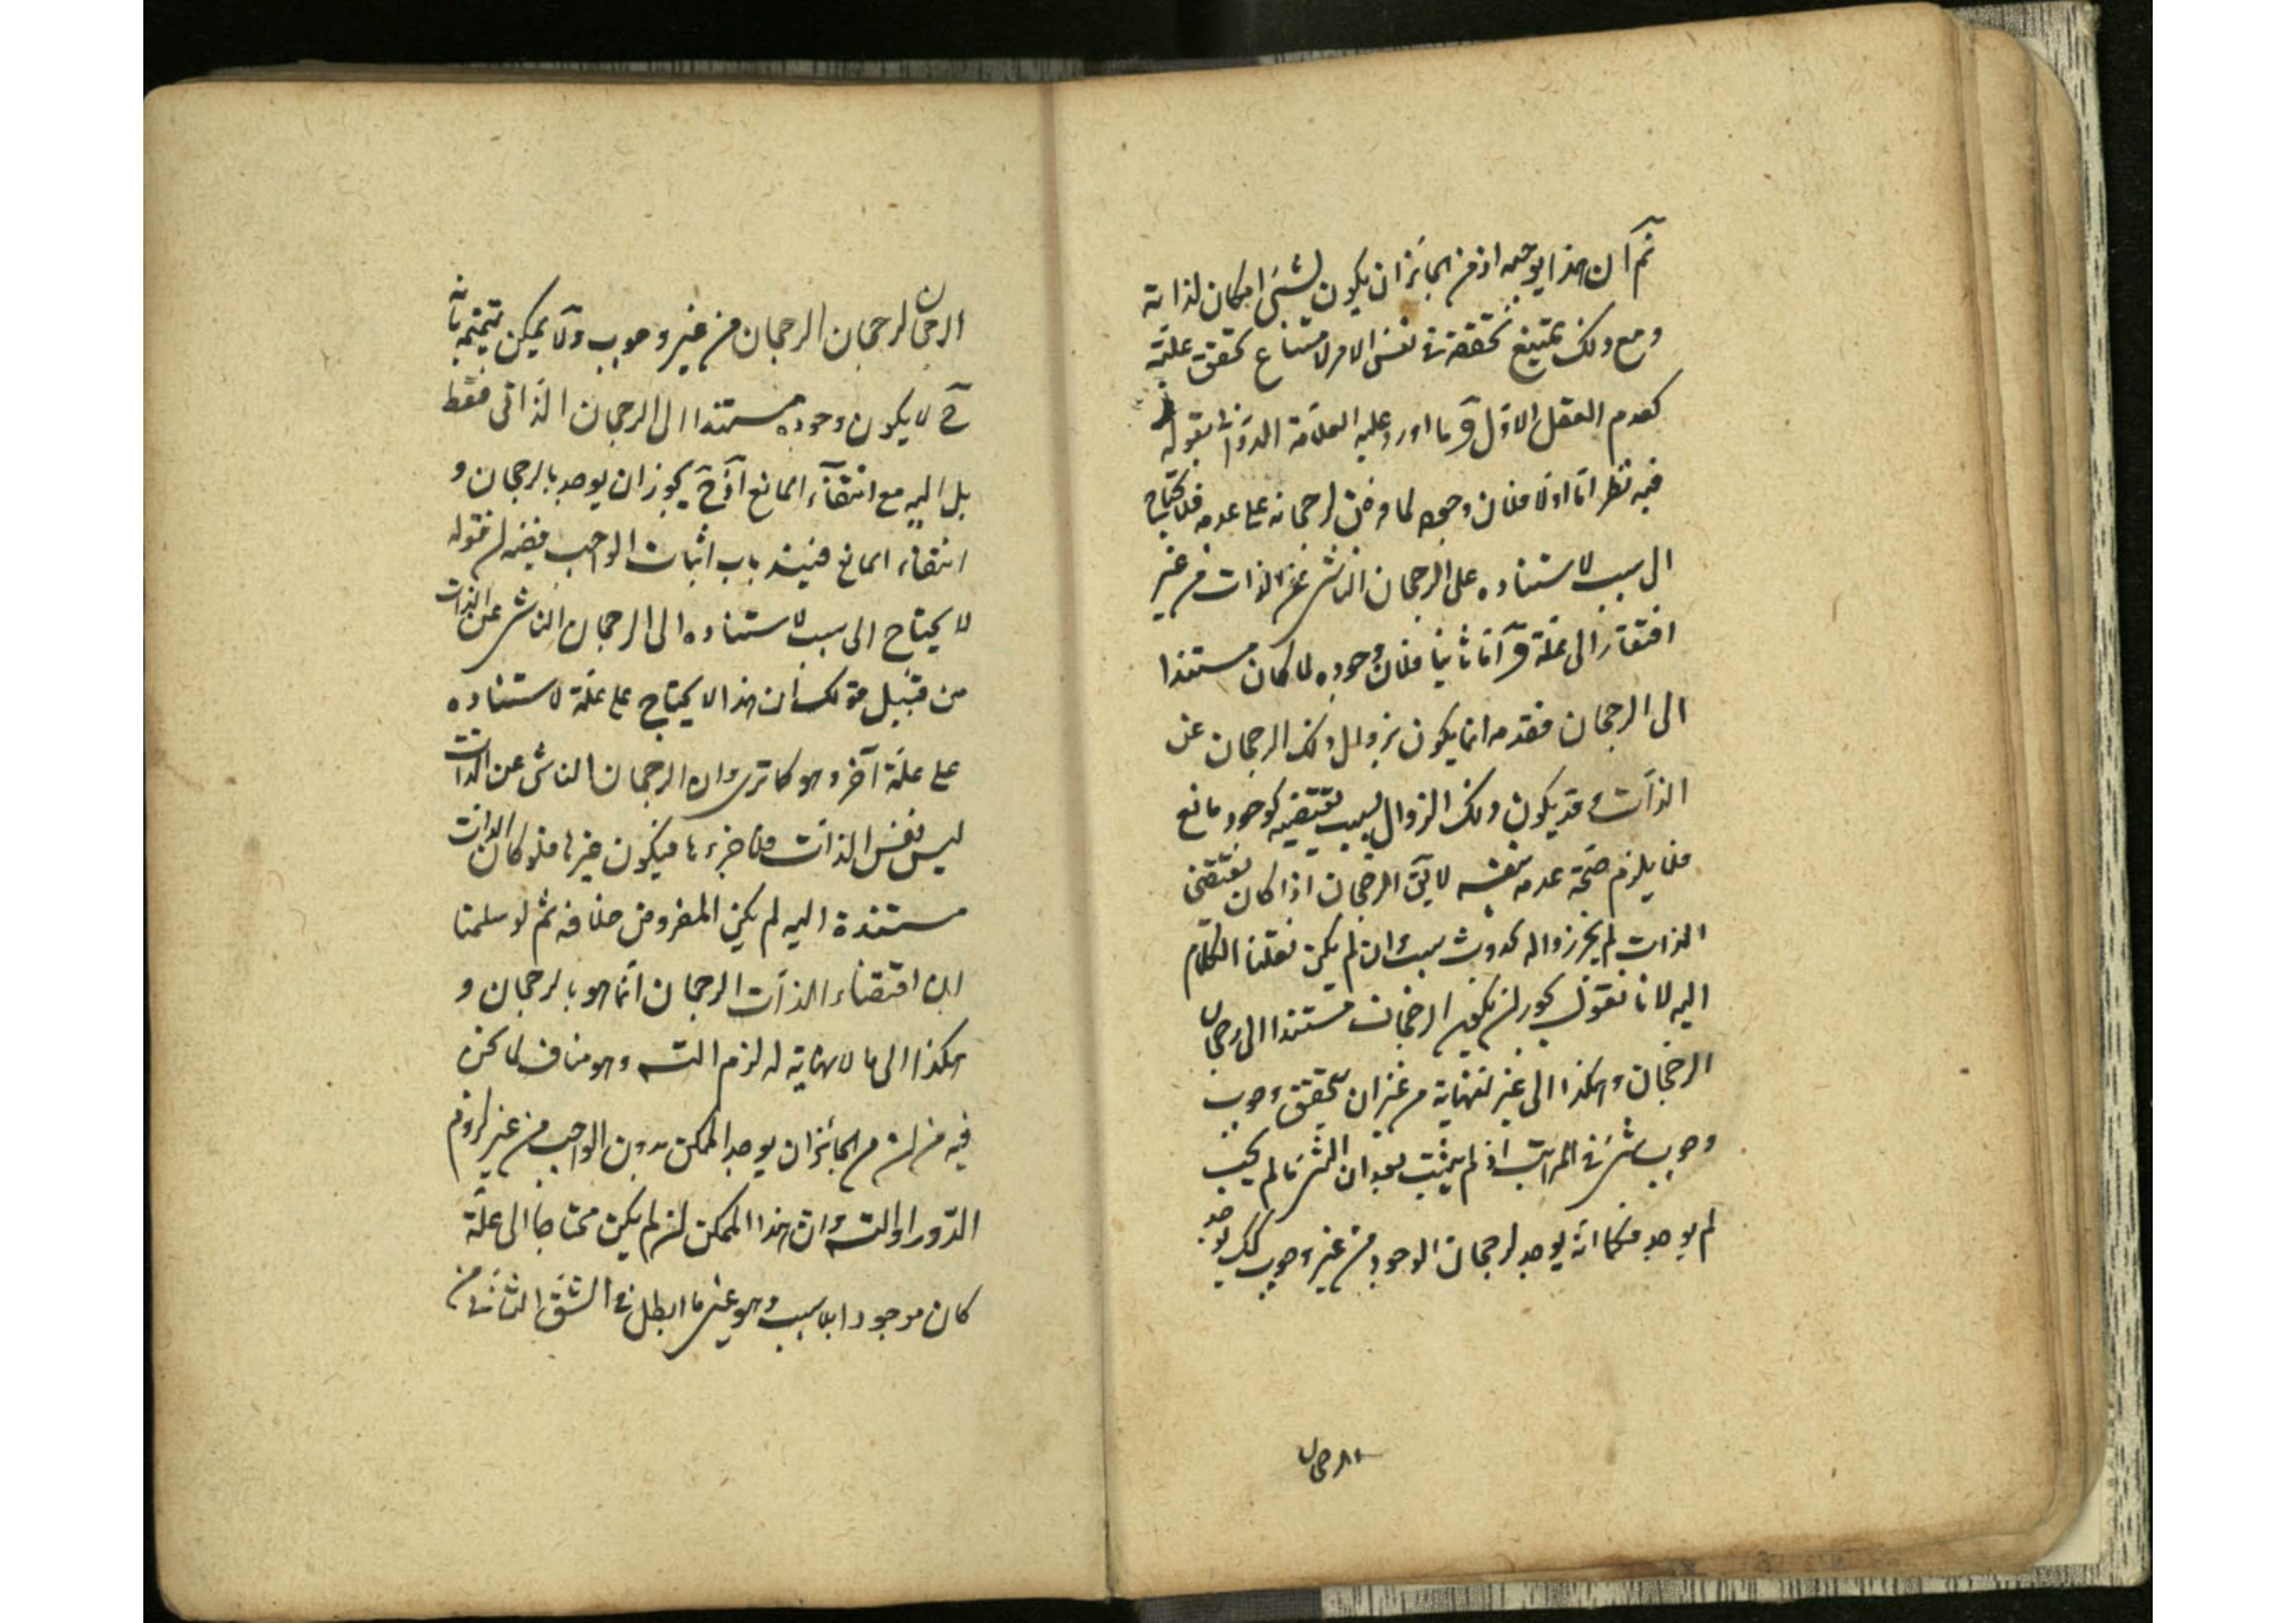 ثم ان هذا يوجه اذ من الجائز ان يكون لشئ امكان لذاته
ومع ذلك يمتنع تحققه فى نفس الامر لامتناع تحقق علته
كعدم العقل الاول وما اورد عليه العلامة الدوانى بقوله
فيه نظر اما اولا فلان وجوده لما فرض لرجحانه على عدمه فلا يحتاج
الى سبب لاستناده على الرجحان الناشى عن الذات من غير
افتقار الى علة واما ثانيا فلان وجوده لما كان مستندا
الى الرجحان فعدمه انما يكون بزوال ذلك الرجحان عن
الذات وقد يكون ذلك الزوال لسبب يقتضيه كوجود مانع
فلا يلزم صحة عدمه بنفسه لا يق الرجحان اذا كان يقتضى
الذات لم يجز زواله لحدوث سبب وان لم يكن نقلنا الكلام
اليه لانا نقول يجوز ان يكون الرجحان مستندا الى رجحان
الرجحان وهكذا الى غير النهاية من غير ان يتحقق وجوب
وجوب شئ فى المراتب اذ لم يثبت بعد ان الشئ ما لم يجب
لم يوجد فكما انه يوجد لرجحان الوجود من غير وجوب كك يوجد
الرجحان
الرجحان لرجحان الرجحان من غير وجوب ولا يمكن تتميمه بانه
ح لا يكون وجوده مستندا الى الرجحان الذاتى فقط
بل اليه مع انتفاء المانع اذ ح يجوز ان يوجد بالرجحان و
انتفاء المانع فينسد باب اثبات الواجب ففيه ان قوله
لا يحتاج الى سبب لاستناده الى الرجحان الناشى عن الذات
من قبيل قولك ان هذا لا يحتاج على علة لاستناده
على علة آخر وهو كما ترى وان الرجحان الناشى عن الذات
ليس نفس الذات ولا جزءها فيكون غيرها فلو كان الذات
مستندة اليه لم يكن المفروض خلافه ثم لو سلمنا
ان اقتضاء الذات الرجحان انما هو بالرجحان و
هكذا الى ما لا نهاية له لزم التسـ وهو مناف لما نحن
فيه من ان من الجائز ان يوجد الممكن بدون الواجب من غير لزوم
الدور او التسـ وان هذا الممكن ان لم يكن محتاجا الى علة
كان موجودا بلا سبب وهو عين ما ابطل فى الشق الثانى من